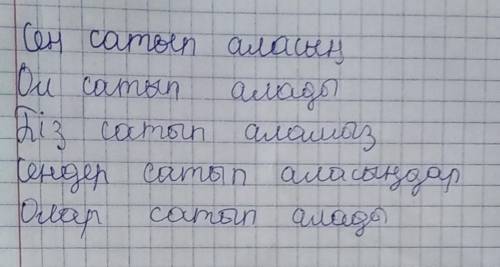 Сен сатып аласың
Ол сатып алады
Біз сатып аламыз
Сендер сатып аласыңдар
Олар сатып алады